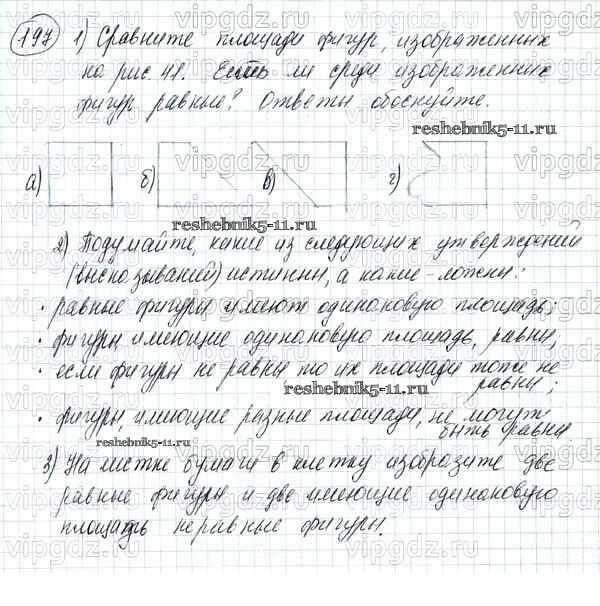 197 1) Сравните площади фигур, изображенных
на рис. 41. Есть ли среди изображенных
фигур равные? Ответы обоснуйте.
reshebnik5-11.ru
а) б) в) г)
reshebnik5-11.ru
2) Подумайте, какие из следующих утверждений
(высказываний) истинны, а какие - ложны:
· равные фигуры имеют одинаковую площадь;
· фигуры имеющие одинаковую площадь, равны;
· если фигуры не равны то их площади тоже не
равны;
reshebnik5-11.ru
· фигуры, имеющие разные площади, не могут
быть равны.
reshebnik5-11.ru
3) На листке бумаги в клетку изобразите две
равные фигуры и две имеющие одинаковую
площадь неравные фигуры.
vipgdz.ru